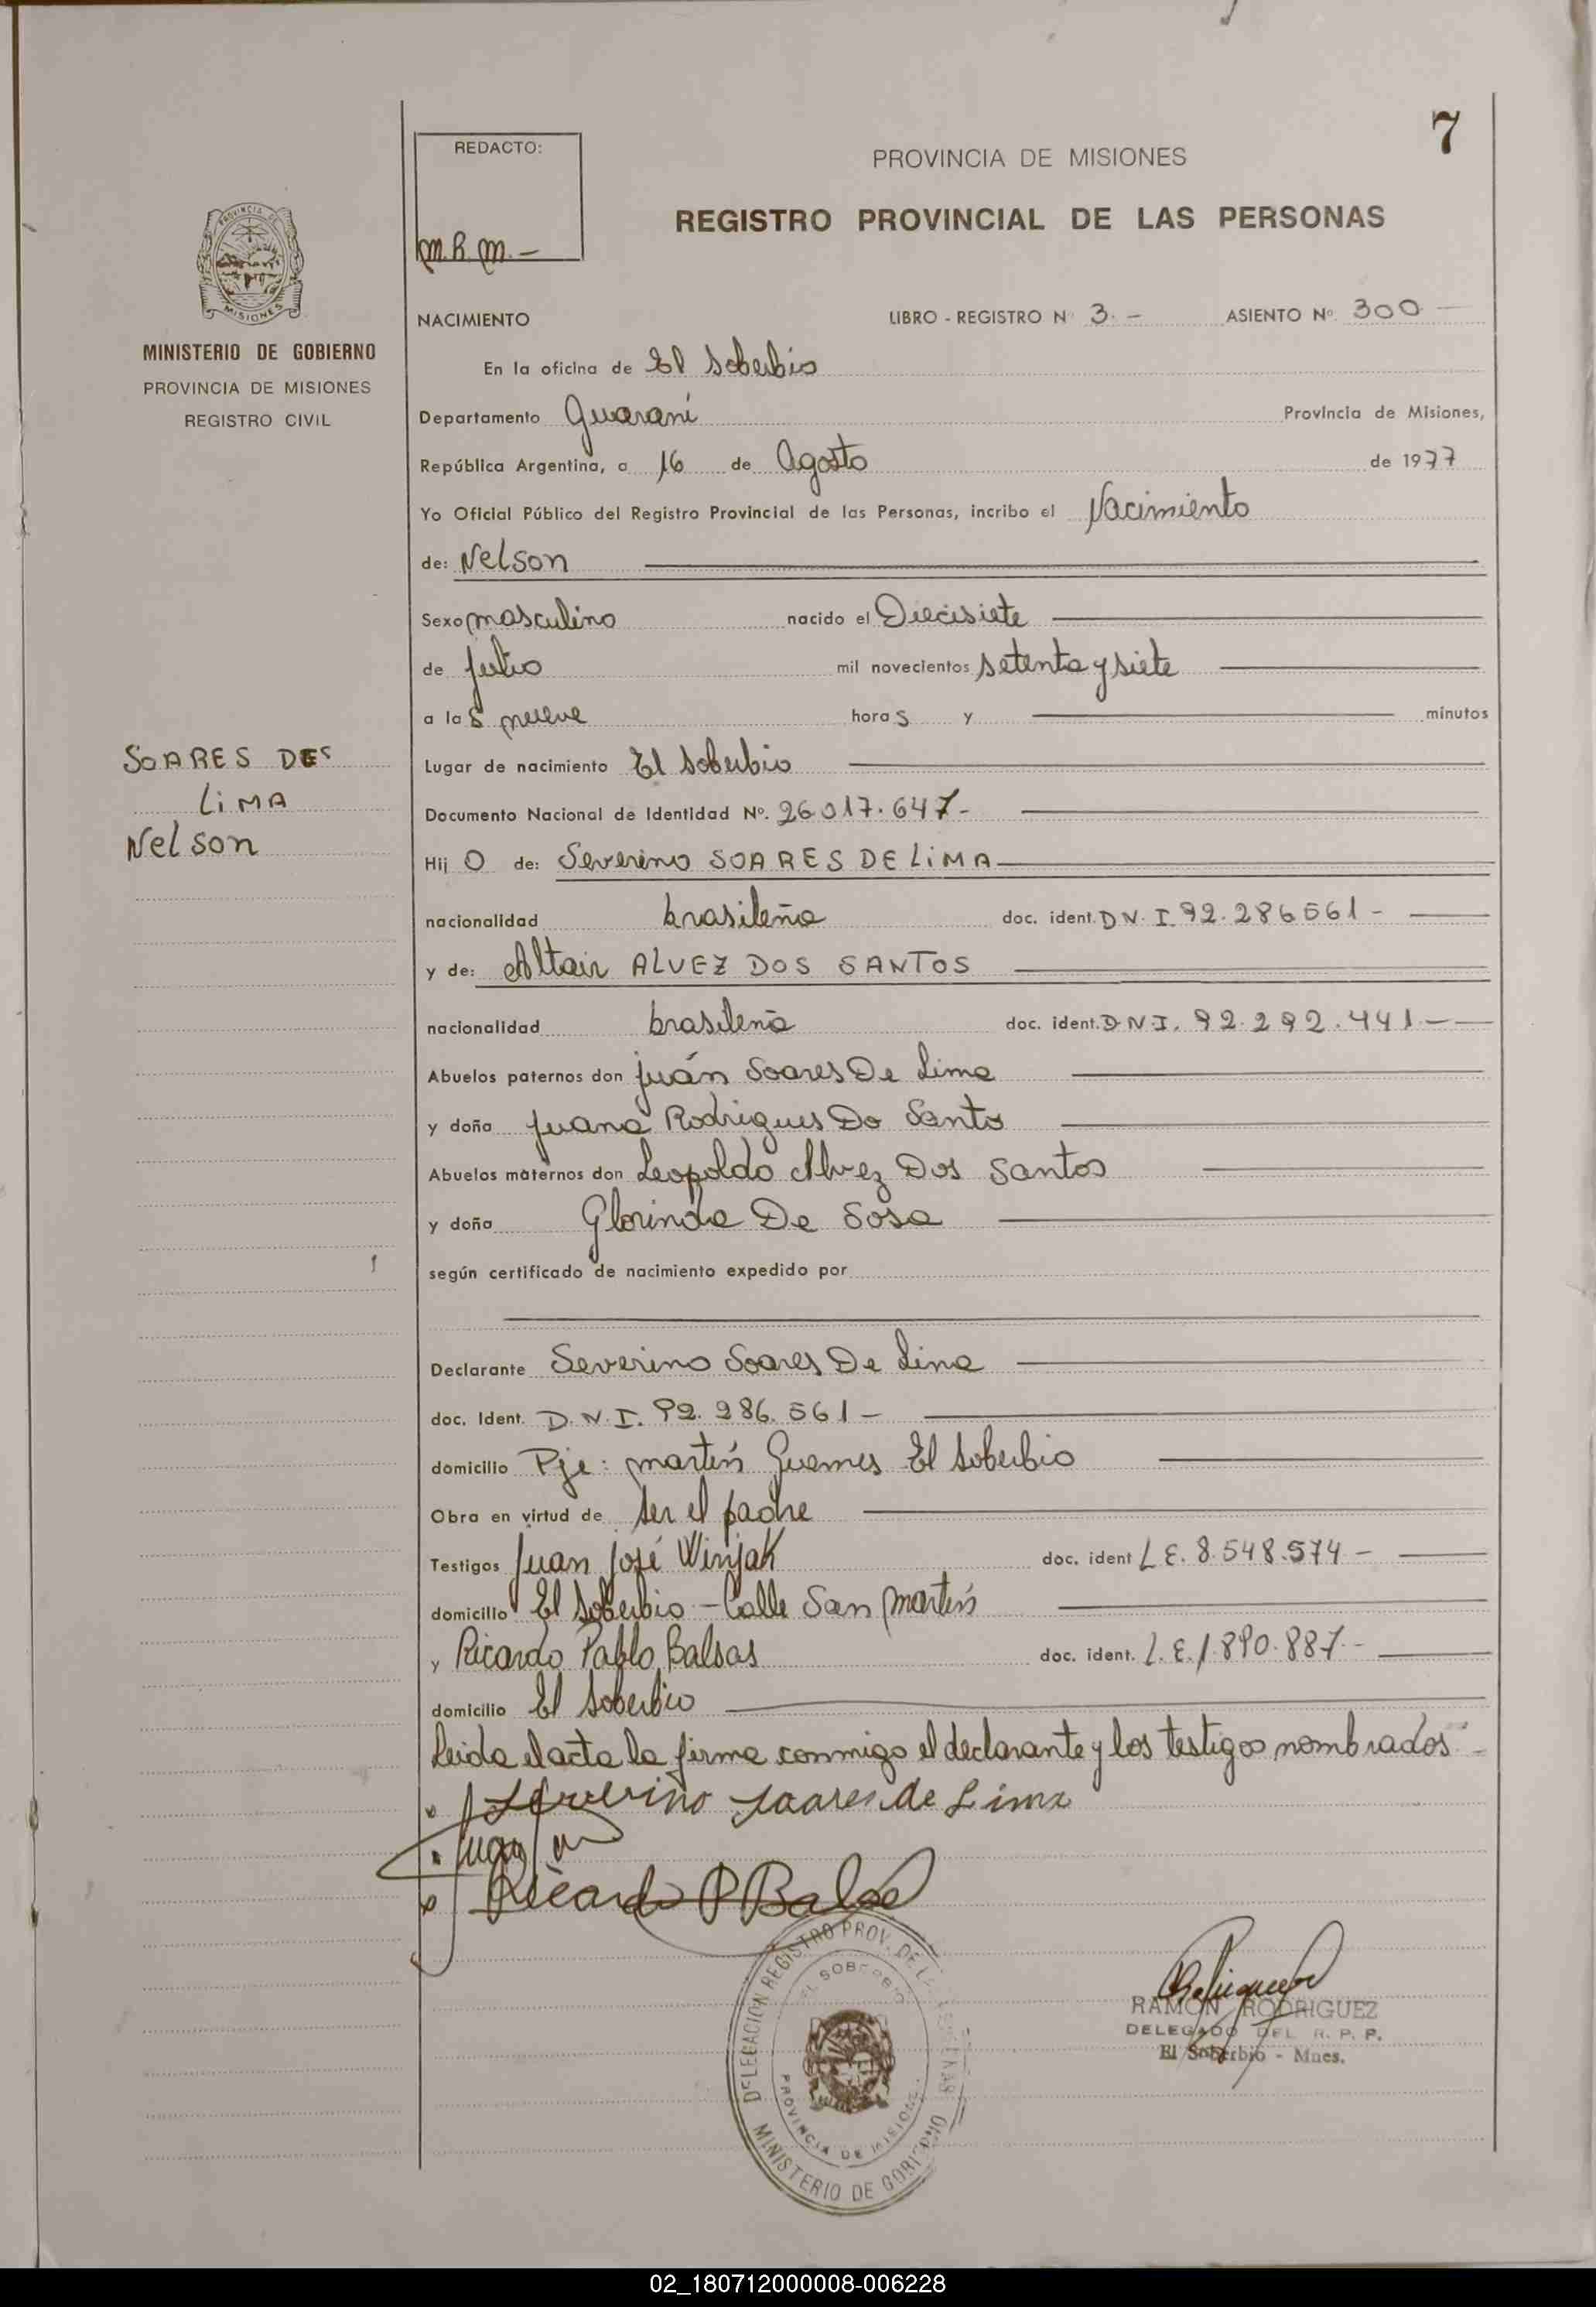 7
REDACTO:
M.R.M.-
PROVINCIA DE MISIONES
REGISTRO PROVINCIAL DE LAS PERSONAS
MISIONES
MINISTERIO DE GOBIERNO
PROVINCIA DE MISIONES
REGISTRO CIVIL
NACIMIENTO LIBRO - REGISTRO N 3.- ASIENTO Nº 300
En la oficina de El Soberbio
Departamento Guaraní Provincia de Misiones,
República Argentina, a 16 de Agosto de 1977
Yo Oficial Público del Registro Provincial de las Personas, incribo el Nacimiento
de: Nelson
Sexo masculino nacido el Diecisiete
de Julio mil novecientos setenta y siete
a las nueve horas y minutos
SOARES DE
LiMA
Nelson
Lugar de nacimiento El Soberbio
Documento Nacional de Identidad Nº. 26.017.647-
Hij O de: Severino SOARES DE LiMA
nacionalidad brasileña doc. ident. D.N.I. 92.286561-
y de: Altair ALVEZ DOS SANTOS
nacionalidad brasileña doc. ident. D.N.I. 92.292.441-
Abuelos paternos don Juán Soares De Lima
y doña Juana Rodrigues Do Santo
Abuelos maternos don Leopoldo Alvez Dos Santos
y doña Glorinda De Sosa
según certificado de nacimiento expedido por
Declarante Severino Soares De Lima
doc. Ident. D.N.I. 92.286.561-
domicilio Pje: Martín Guemes El Soberbio
Obra en virtud de ser el padre
Testigos Juan José Winjak doc. ident L E. 8.548.574-
domicilio El Soberbio - Calle San Martín
y Ricardo Pablo Balsas doc. ident. L.E.1.890.887.-
domicilio El Soberbio
Leida el acta la firma conmigo el declarante y los testigos nombrados.-
Severino Soares de Lima
Juan
Ricardo P Balsa
DELEGACION REGISTRO PROV. DE LAS PERSONAS
EL SOBERBIO
PROVINCIA DE MISIONES
MINISTERIO DE GOBIERNO
RAMON RODRIGUEZ
DELEGADO DEL R. P. P.
El Soberbio - Mnes.
02_180712000008-006228